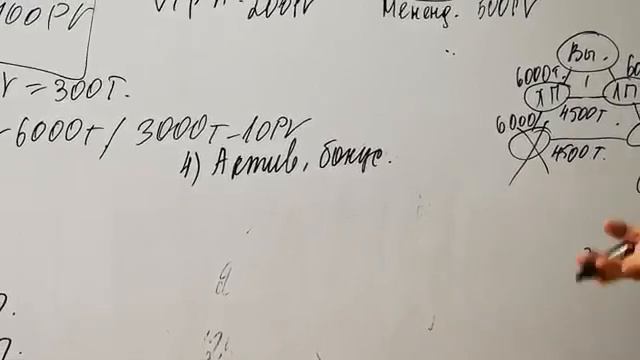 100PV
200PV
Менендж. 500PV
V = 300т.
- 6000т / 3000т - 10PV
4) Актив, бонус.
Вы.
6000т. 1 60
ЛП ЛП
4500т.
6000
4500т.